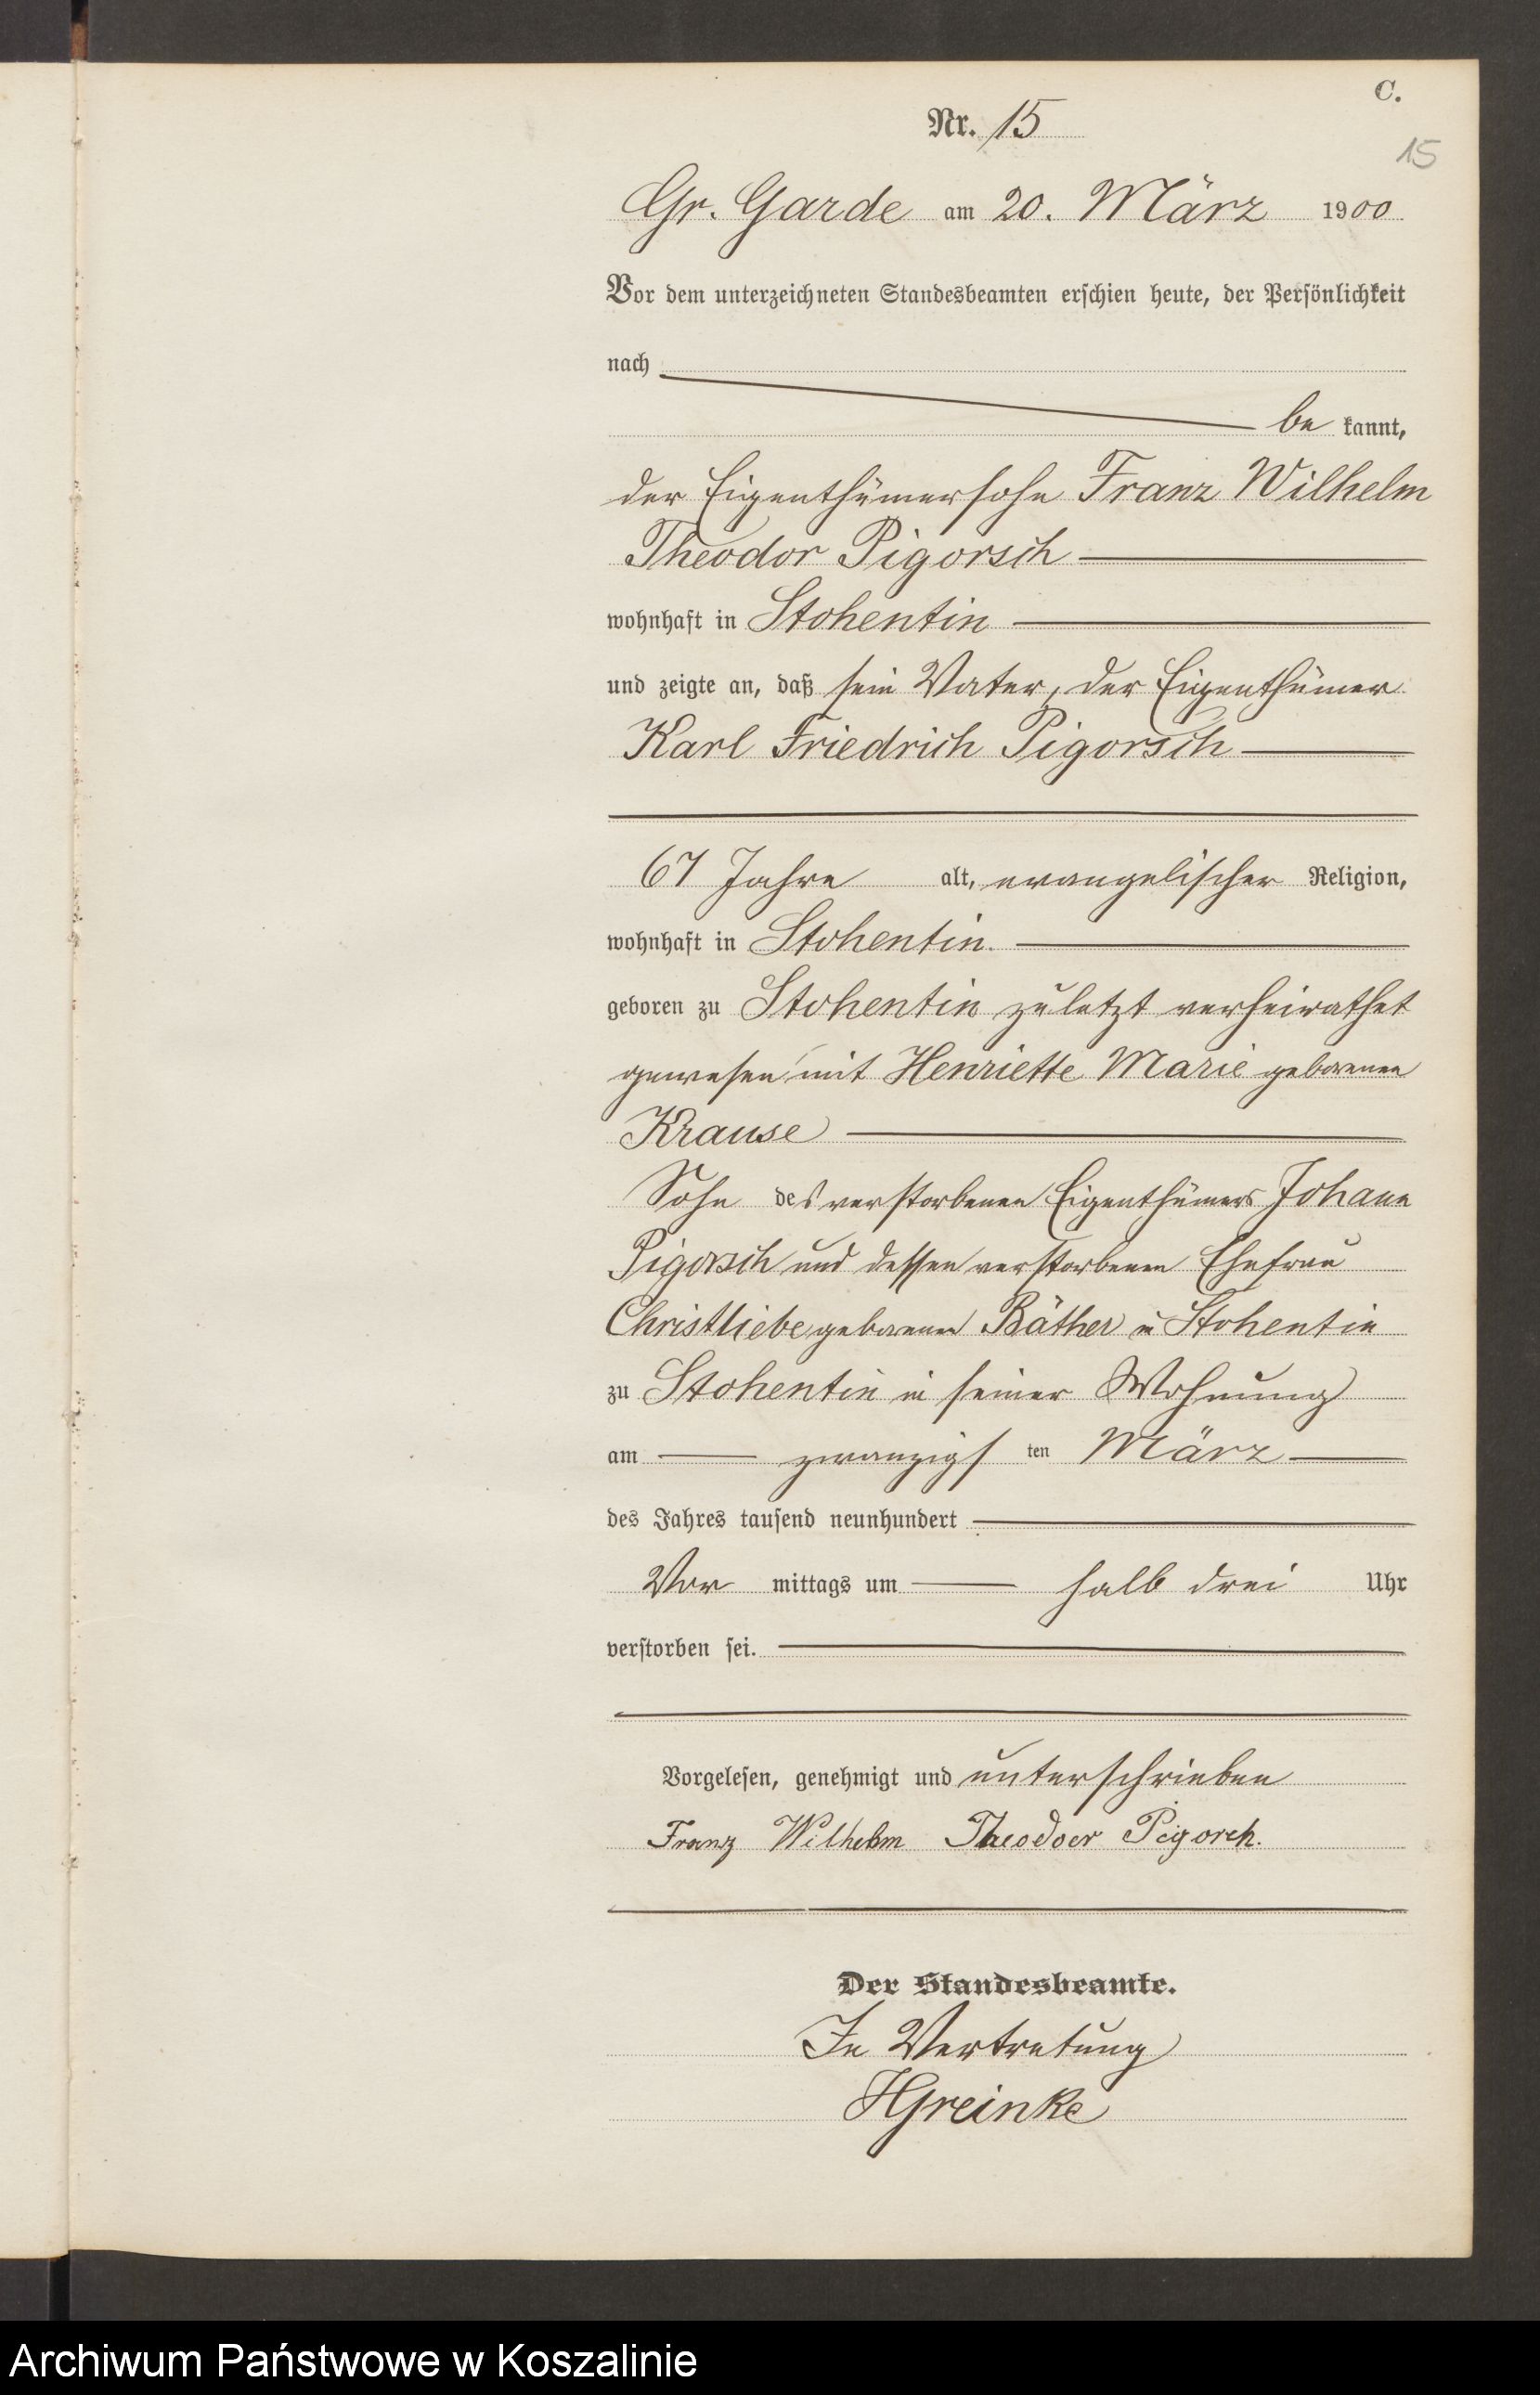 C.
Nr. 15
15
Gr. Garde am 20. März 1900
Vor dem unterzeichneten Standesbeamten erschien heute, der Persönlichkeit
nach
be kannt,
der Eigenthümersohn Franz Wilhelm
Theodor Pigorsch
wohnhaft in Stohentin
und zeigte an, daß sein Vater, der Eigenthümer
Karl Friedrich Pigorsch
67 Jahre alt, evangelischer Religion,
wohnhaft in Stohentin.
geboren zu Stohentin zuletzt verheirathet
gewesen mit Henriette Marie geborenen
Krause
Sohn des verstorbenen Eigenthümers Johann
Pigorsch und dessen verstorbenen Ehefrau
Christliebe geborenen Räther in Stohentin
zu Stohentin in seiner Wohnung
am zwanzigs ten März
des Jahres tausend neunhundert
Vor mittags um halb drei Uhr
verstorben sei.
Vorgelesen, genehmigt und unterschrieben
Franz Wilhelm Theodoer Pigorch.
Der Standesbeamte.
In Vertretung
HGreinke
Archiwum Państwowe w Koszalinie